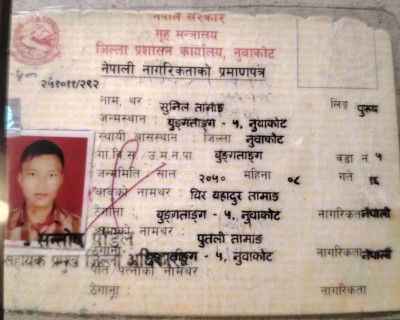 नेपाल सरकार
गृह मन्त्रालय
जिल्ला प्रशासन कार्यालय, नुवाकोट
नेपाली नागरिकताको प्रमाणपत्र
२५१०११/२९२
नाम, थर : सुनिल तामाङ लिङ्ग पुरुष
जन्मस्थान : बुङ्गताङ्ग - ५, नुवाकोट
स्थायी वासस्थान जिल्ला नुवाकोट
गा.वि.स./उ.म.न.पा. बुङ्गताङ्ग वडा नं ५
जन्ममिति साल २०५० महिना ०८ गते
बाबुको नामथर : विर बहादुर तामाङ
ठेगाना : बुङ्गताङ्ग - ५, नुवाकोट नागरिकता नेपाली
आमाको नामथर : पुतली तामाङ
सन्तोष पौडेल
ठेगाना : - ५, नुवाकोट नागरिकता नेपाली
सहायक प्रमुख जिल्ला अधिकारी
पति पत्नीको नामथर :
ठेगाना : नागरिकता